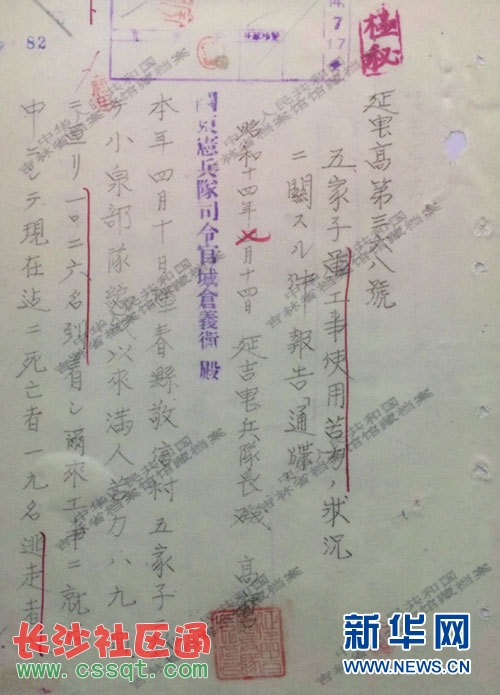 極秘
14.7.17
82
延憲高第三六八號
五家子軍工事使用苦力ノ狀況
ニ關スル件報告「通牒」
昭和十四年七月十四日 延吉憲兵隊長 磯 高麿
關東憲兵隊司令官 城倉義衛 殿
本年四月十日琿春縣敬信村五家子
小泉部隊 以來滿人苦力八九
ニ亘リ一〇二六名到着シ爾來工事ニ就
中ニシテ現在迠ニ死亡者一九名逃走者
中华人民共和国
吉林省档案馆馆藏档案
长沙社区通
www.cssqt.com
新华网
WWW.NEWS.CN